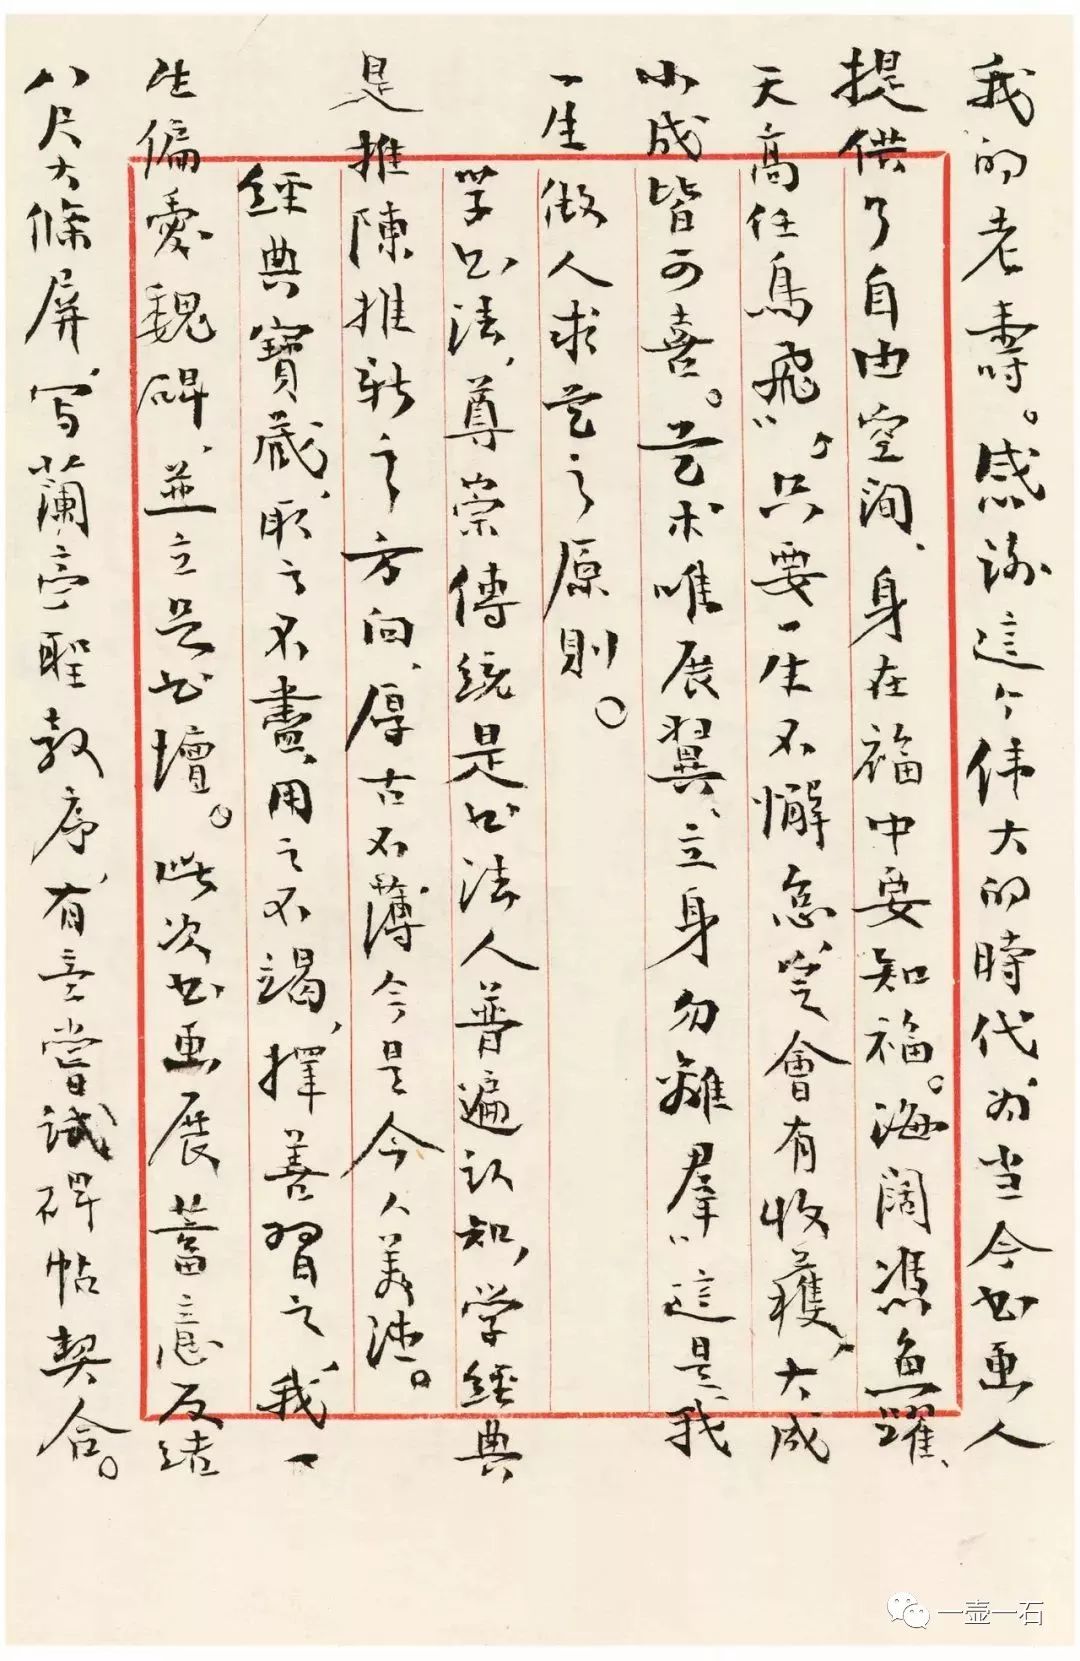 我的老寿。感谢這个伟大的時代为当今书画人
提供了自由空间、身在福中要知福。海阔憑鱼躍、
天高任鳥飛”，只要一生不懈怠会有收穫、大成
小成皆可喜。艺术唯展翼、立身勿離群”這是我
一生做人求艺之原則。
学书法，尊崇傳統是书法人普遍认知，学经典
是推陳推新之方向、厚古不薄今是今人美德。
經典寶藏、取之不盡、用之不竭，擇善習之、我一
生偏爱魏碑、並立足书壇。此次书画展蓄意反绪
八尺大條屏、写蘭亭聖教序、有意嘗試碑帖契合。
一壶一石